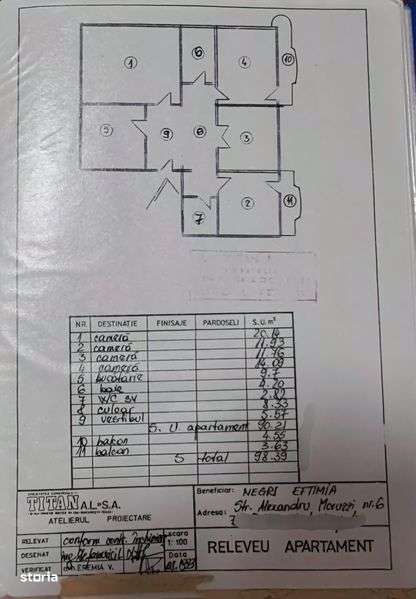 1
6
4
10
5
9
8
3
7
2
11
NR. DESTINAȚIE FINISAJE PARDOSELI S.U. m²
1 cameră 20.14
2 cameră 11.93
3 cameră 11.76
4 cameră 14.09
5 bucătărie 9.7
6 baie 4.20
7 W/C sv 2.82
8 culoar 8.33
9 vestibul 5.57
S. U. apartament 90.21
10 balcon 4.55
11 balcon 3.63
S total 98.39
TITAN AL-S.A.
ATELIERUL PROIECTARE
Beneficiar: NEGRI EFTIMIA
Adresa: Str. Alexandru Moruzzi, nr. 6
RELEVAT conform Scara 1:100
DESENAT
VERIFICAT EREMIA V. Data
RELEVEU APARTAMENT
storia